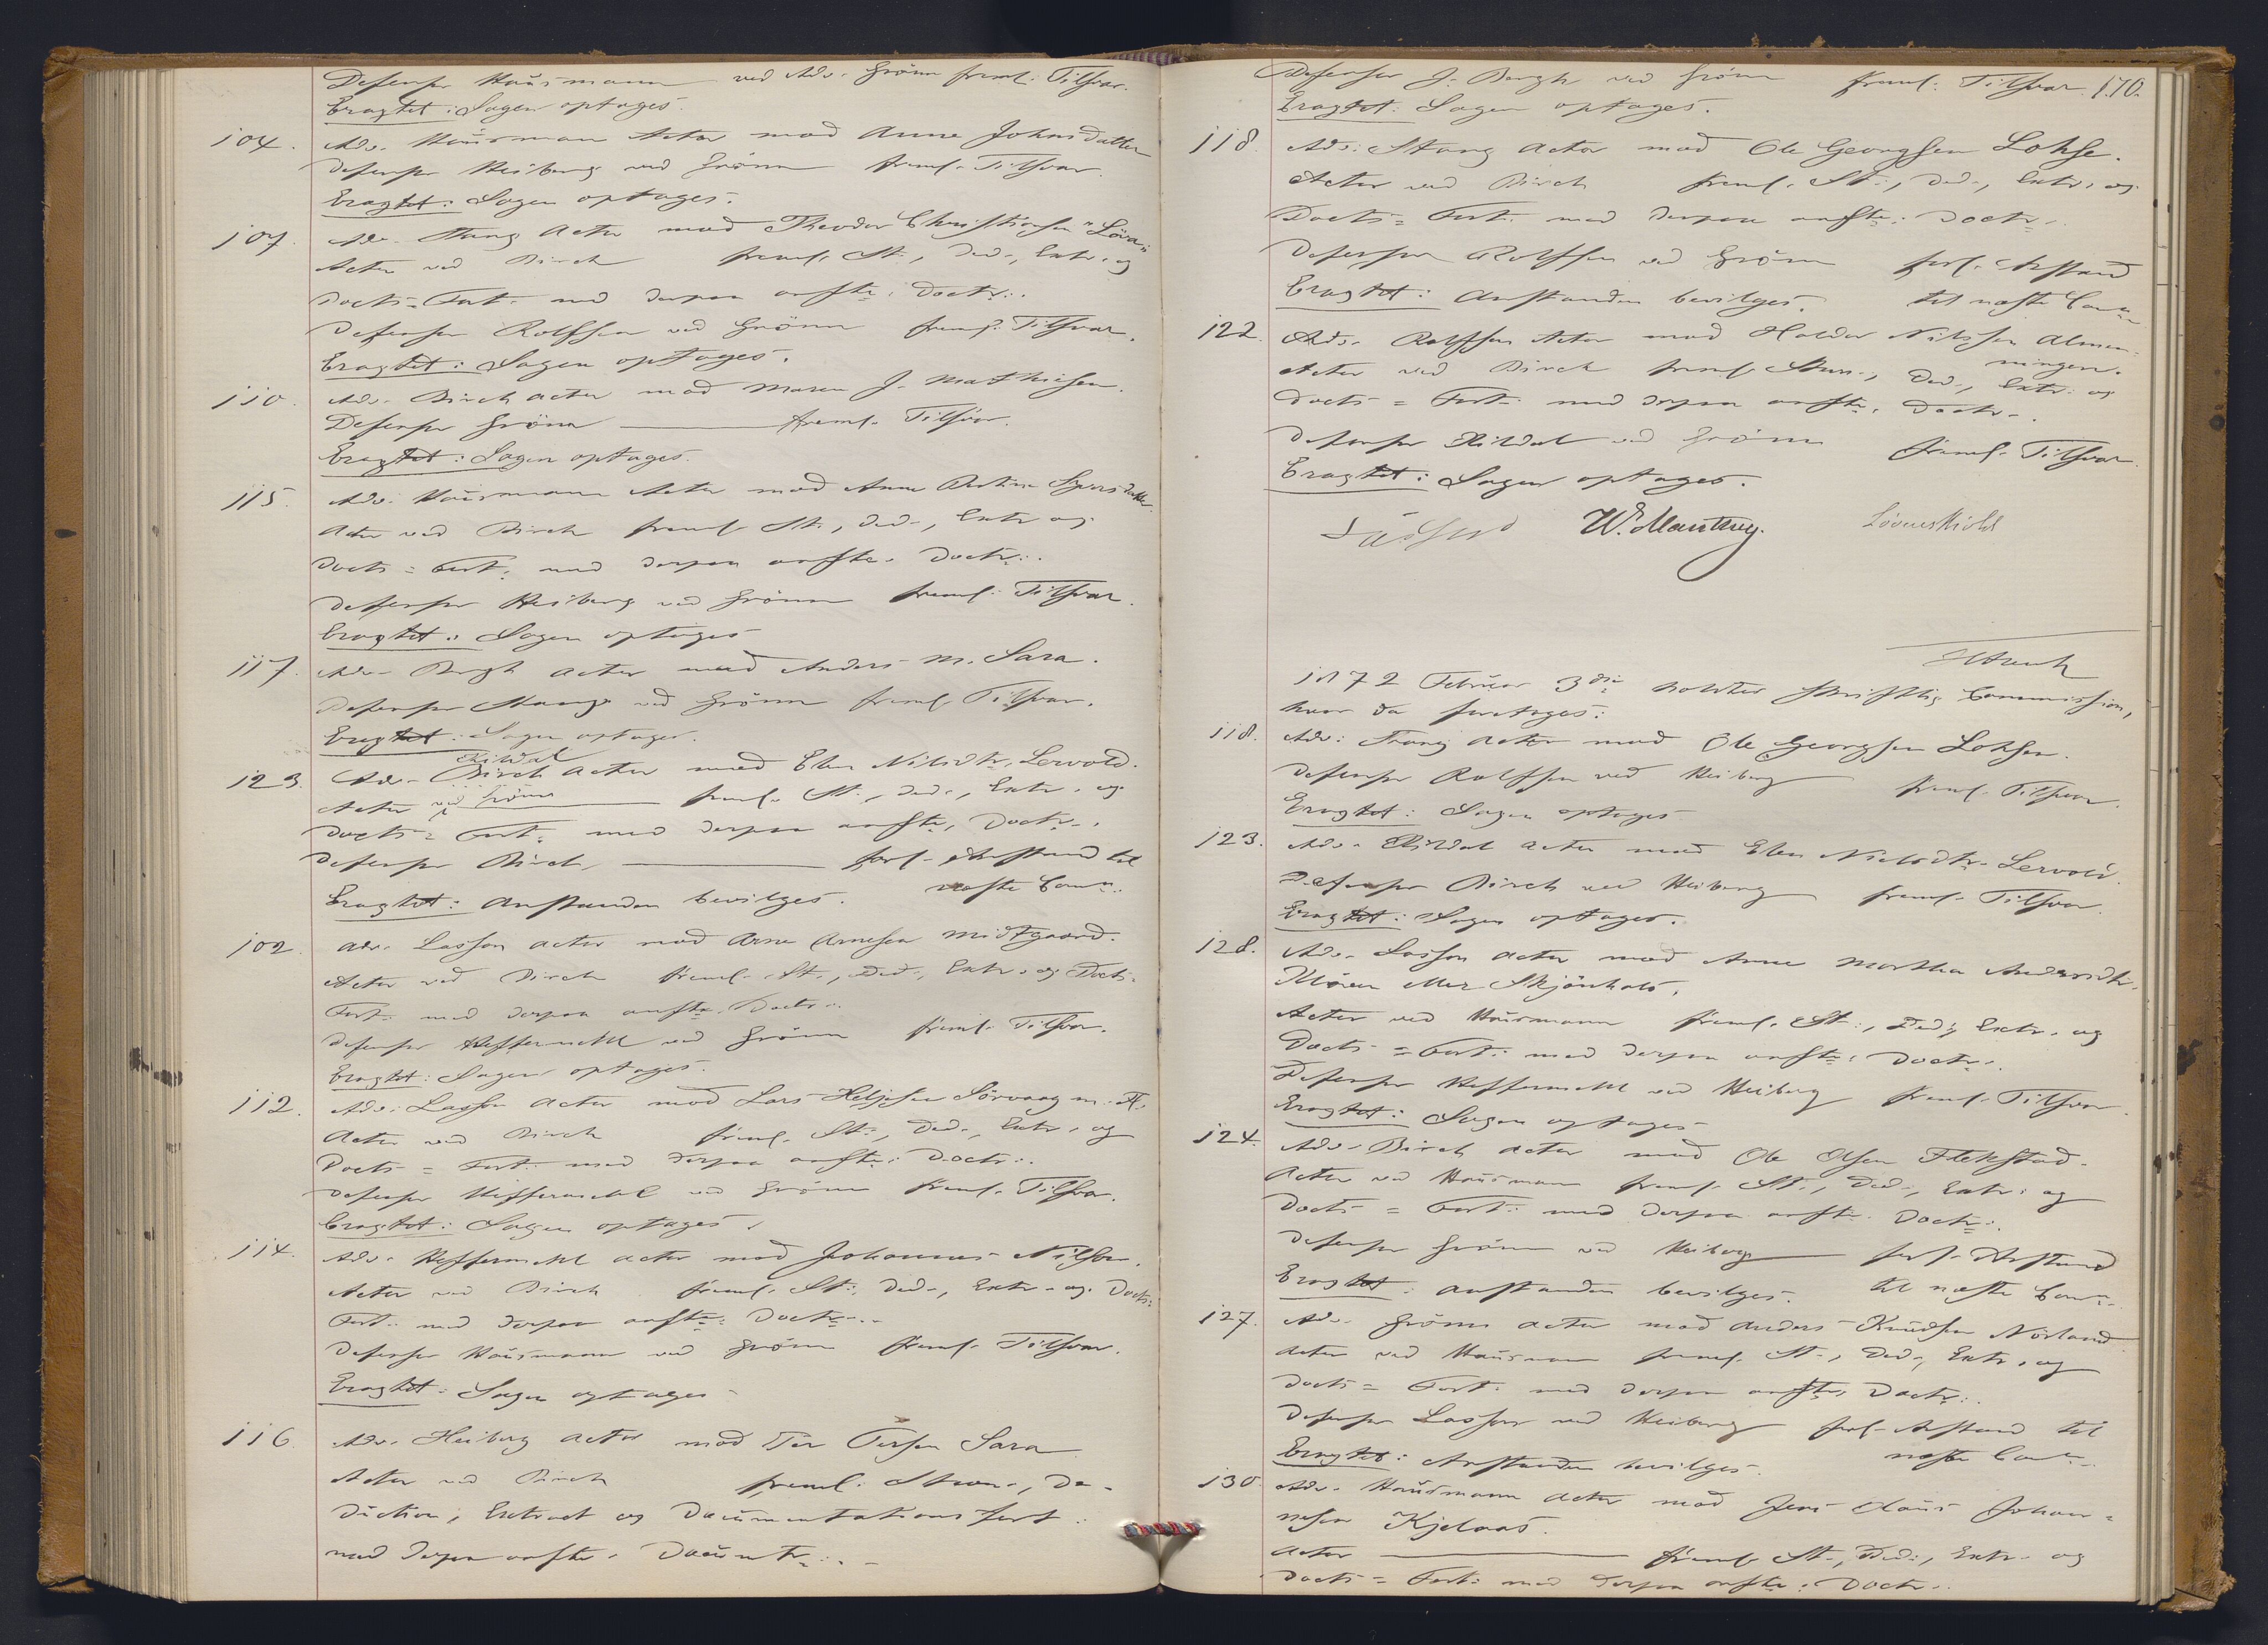 Defensor Hausmann ved Adv. Grönn freml. Tilsvar.
Eragtet: Sagen optages.
104. Adv. Hausman Actor mod Anne Johnsdatter
Defensor Heiberg ved Grönn freml. Tilsvar.
Eragtet: Sagen optages.
107. Adv. Stang Actor mod Theodor Christiansen "Löva"
Actor ved Birch freml. St., Ded., Extr. og
Docts = Fort. med derpaa anfte. Doctr.
Defensor Rolfsen ved Grönn freml. Tilsvar.
Eragtet: Sagen optages.
110. Adv. Birch actor mod Maren J. Mathiesen.
Defensor Grönn freml. Tilsvar.
Eragtet: Sagen optages.
115. Adv. Hausmann Actor mod Anne Sjursdatter.
Actor ved Birch freml. St., Ded., Extr. og
Docts = Fort. med derpaa anfte. Doctr.
Defensor Heiberg ved Grönn freml. Tilsvar.
Eragtet: Sagen optages
117. Adv. Bergh actor mod Anders M. Sara.
Defensor Stang ved Grönn freml. Tilsvar.
Eragtet: Sagen optages.
Skildal
123. Adv. Birch Actor mod Elen Nilsdtr. Lervold.
Actor ved Grönn freml. St., Ded., Extr. og
Docts = Fort. med derpaa anfte. Doctr.
Defensor Birch forl. Anstand til
Eragtet: Anstanden bevilges. næste Comm.
102. Adv. Lasson actor mod Arne Arnesen Midtgaard.
Actor ved Birch freml. St., Ded., Extr. og Docts.
Fort. med derpaa anfte. Doctr.
Defensor Heffermehl ved Grönn freml. Tilsvar.
Eragtet: Sagen optages.
112. Adv. Lasson Actor mod Lars Heljesen Sörvaag m. Fl.
Actor ved Birch freml. St., Ded., Extr. og
Docts = Fort. med derpaa anfte. Doctr.
Defensor Heffermehl ved Grönn freml. Tilsvar.
Eragtet: Sagen optages.
114. Adv. Heffermehl actor mod Johannes Nilsen.
Actor ved Birch freml. St., Ded., Extr. og Docts.
Fort. med derpaa anfte. Doctr.
Defensor Hausmann ved Grönn freml. Tilsvar.
Eragtet: Sagen optages
116. Adv. Heiberg actor mod Per Persen Sara
Actor ved Birch freml. Stevn., De-
duction, Extract og Documentations fort.
med derpaa anfte. Documtr.
Defensor J. Bergh ved Grönn freml. Tilsvar. 170.
Eragtet: Sagen optages.
118. Adv. Stang Actor mod Ole Georgsen Lohse.
Actor ved Birch freml. St., Ded., Extr. og
Docts = Fort. med derpaa anfte. Doctr.
Defensor Rolfsen ved Grönn forl. Anstand
Eragtet: Anstanden bevilges. til næste Comm
122. Adv. Rolfsen Actor mod Haldor Nilsen Almen-
ningen.
Actor ved Birch freml. Stevn., Ded., Extr. og
Docts = Fort. med derpaa anfte. Doctr.
Defensor Skildal ved Grönn freml. Tilsvar.
Eragtet: Sagen optages.
Lasson W. Manthey. Løvenskiold
1872 Februar 3die holdtes skriftlig Commission,
hvor da foretoges:
118. Adv. Stang Actor mod Ole Georgsen Lohsen.
Defensor Rolfsen ved Heiberg freml. Tilsvar.
Eragtet: Sagen optages
123. Adv. Skildal Actor mod Elen Nielsdtr. Lervold.
Defensor Birch ved Heiberg freml. Tilsvar.
Eragtet: Sagen optages.
128. Adv. Lasson Actor mod Anne Martha Andersdtr.
eller Skjönhals.
Actor ved Hausmann freml. St., Ded., Extr. og
Docts = Fort. med derpaa anfte. Doctr.
Defensor Heffermehl ved Heiberg freml. Tilsvar.
Eragtet: Sagen optages
124. Adv. Birch actor mod Ole Olsen Flekstad.
Actor ved Hausmann freml. St., Ded., Extr. og
Docts = Fort. med derpaa anfte. Doctr.
Defensor Grönn ved Heiberg forl. Anstand
Eragtet: Anstanden bevilges. til næste Comm.
127. Adv. Grönn actor mod Anders Knudsen Nörland
Actor ved Hausmann freml. St., Ded., Extr. og
Docts = Fort. med derpaa anfte. Doctr.
Defensor Lasson ved Heiberg forl. Anstand til
Eragtet: Anstanden bevilges. næste Comm.
130. Adv. Hausmann Actor mod Jens Claus Johan=
nesen Kjelaas.
Actor freml. St., Ded., Extr. og
Docts = Fort. med derpaa anfte. Doctr.